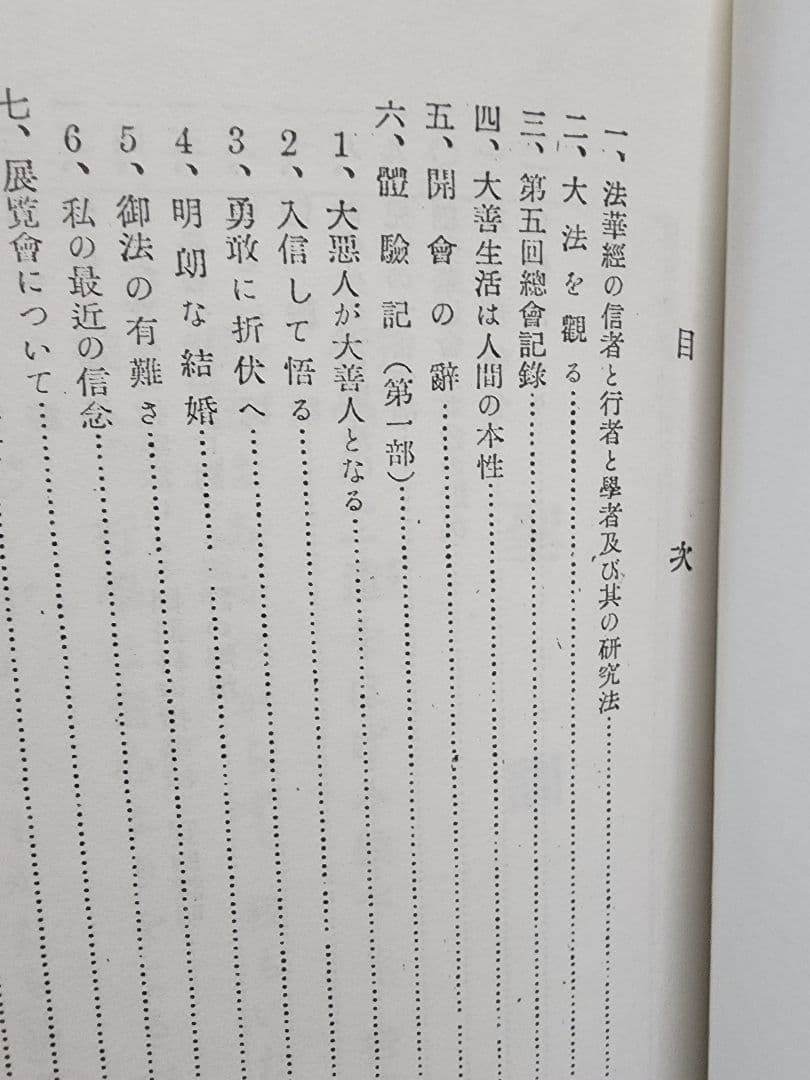 目次
一、法華經の信者と行者と學者及び其の研究法
二、大法を觀る
三、第五回總會記錄
四、大善生活は人間の本性
五、開會の辭
六、體驗記（第一部）
1、大惡人が大善人となる
2、入信して悟る
3、勇敢に折伏へ
4、明朗な結婚
5、御法の有難さ
6、私の最近の信念
七、展覧會について